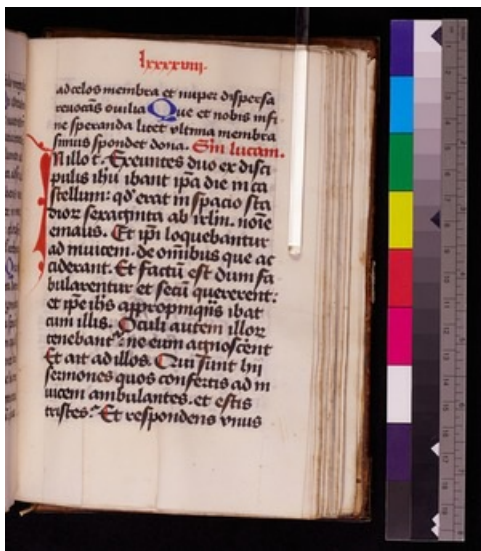 lxxxxviii.
ad celos membra et nuper dispersa
revocās ovilia Que et nobis infi
ne speranda licet vltima membra
simus spondet dona. Sm lucam.
In illo t. Exeuntes duo ex disci
pulis ihu ibant ipa die in ca
stellum: qd erat in spacio sta
dior sexaginta ab irlm. noīe
emaus. Et ipi loquebantur
ad muicem. de omībus que ac
ciderant. Et factū est dum fa
bularentur et secū quererent:
et ipe ihs appropīnqns ibat
cum illis. Oculi autem illor
tenebant ne eum agnoscēnt
Et ait ad illos. Qui sunt hii
sermones quos confertis ad in
uicem ambulantes. et estis
tristes. Et respondens vnus